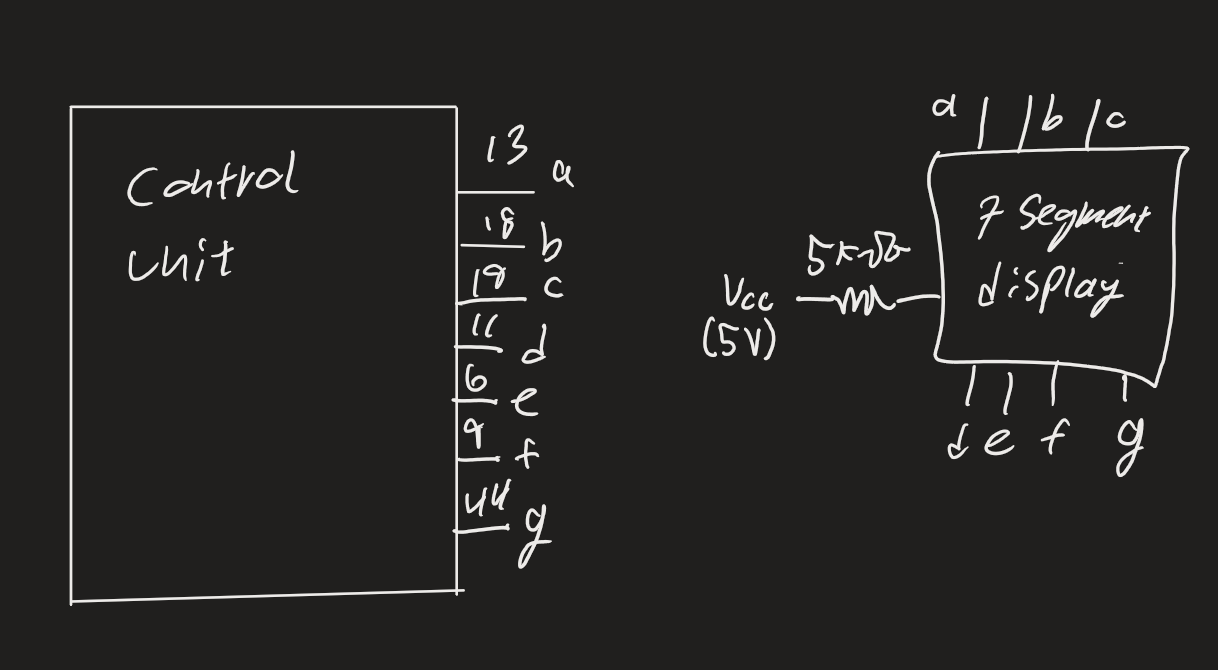 Control
Unit
13
a
18
b
19
c
11
d
6
e
9
f
44
g
Vcc
(5V)
a
b
c
7 Segment
display
d
e
f
g